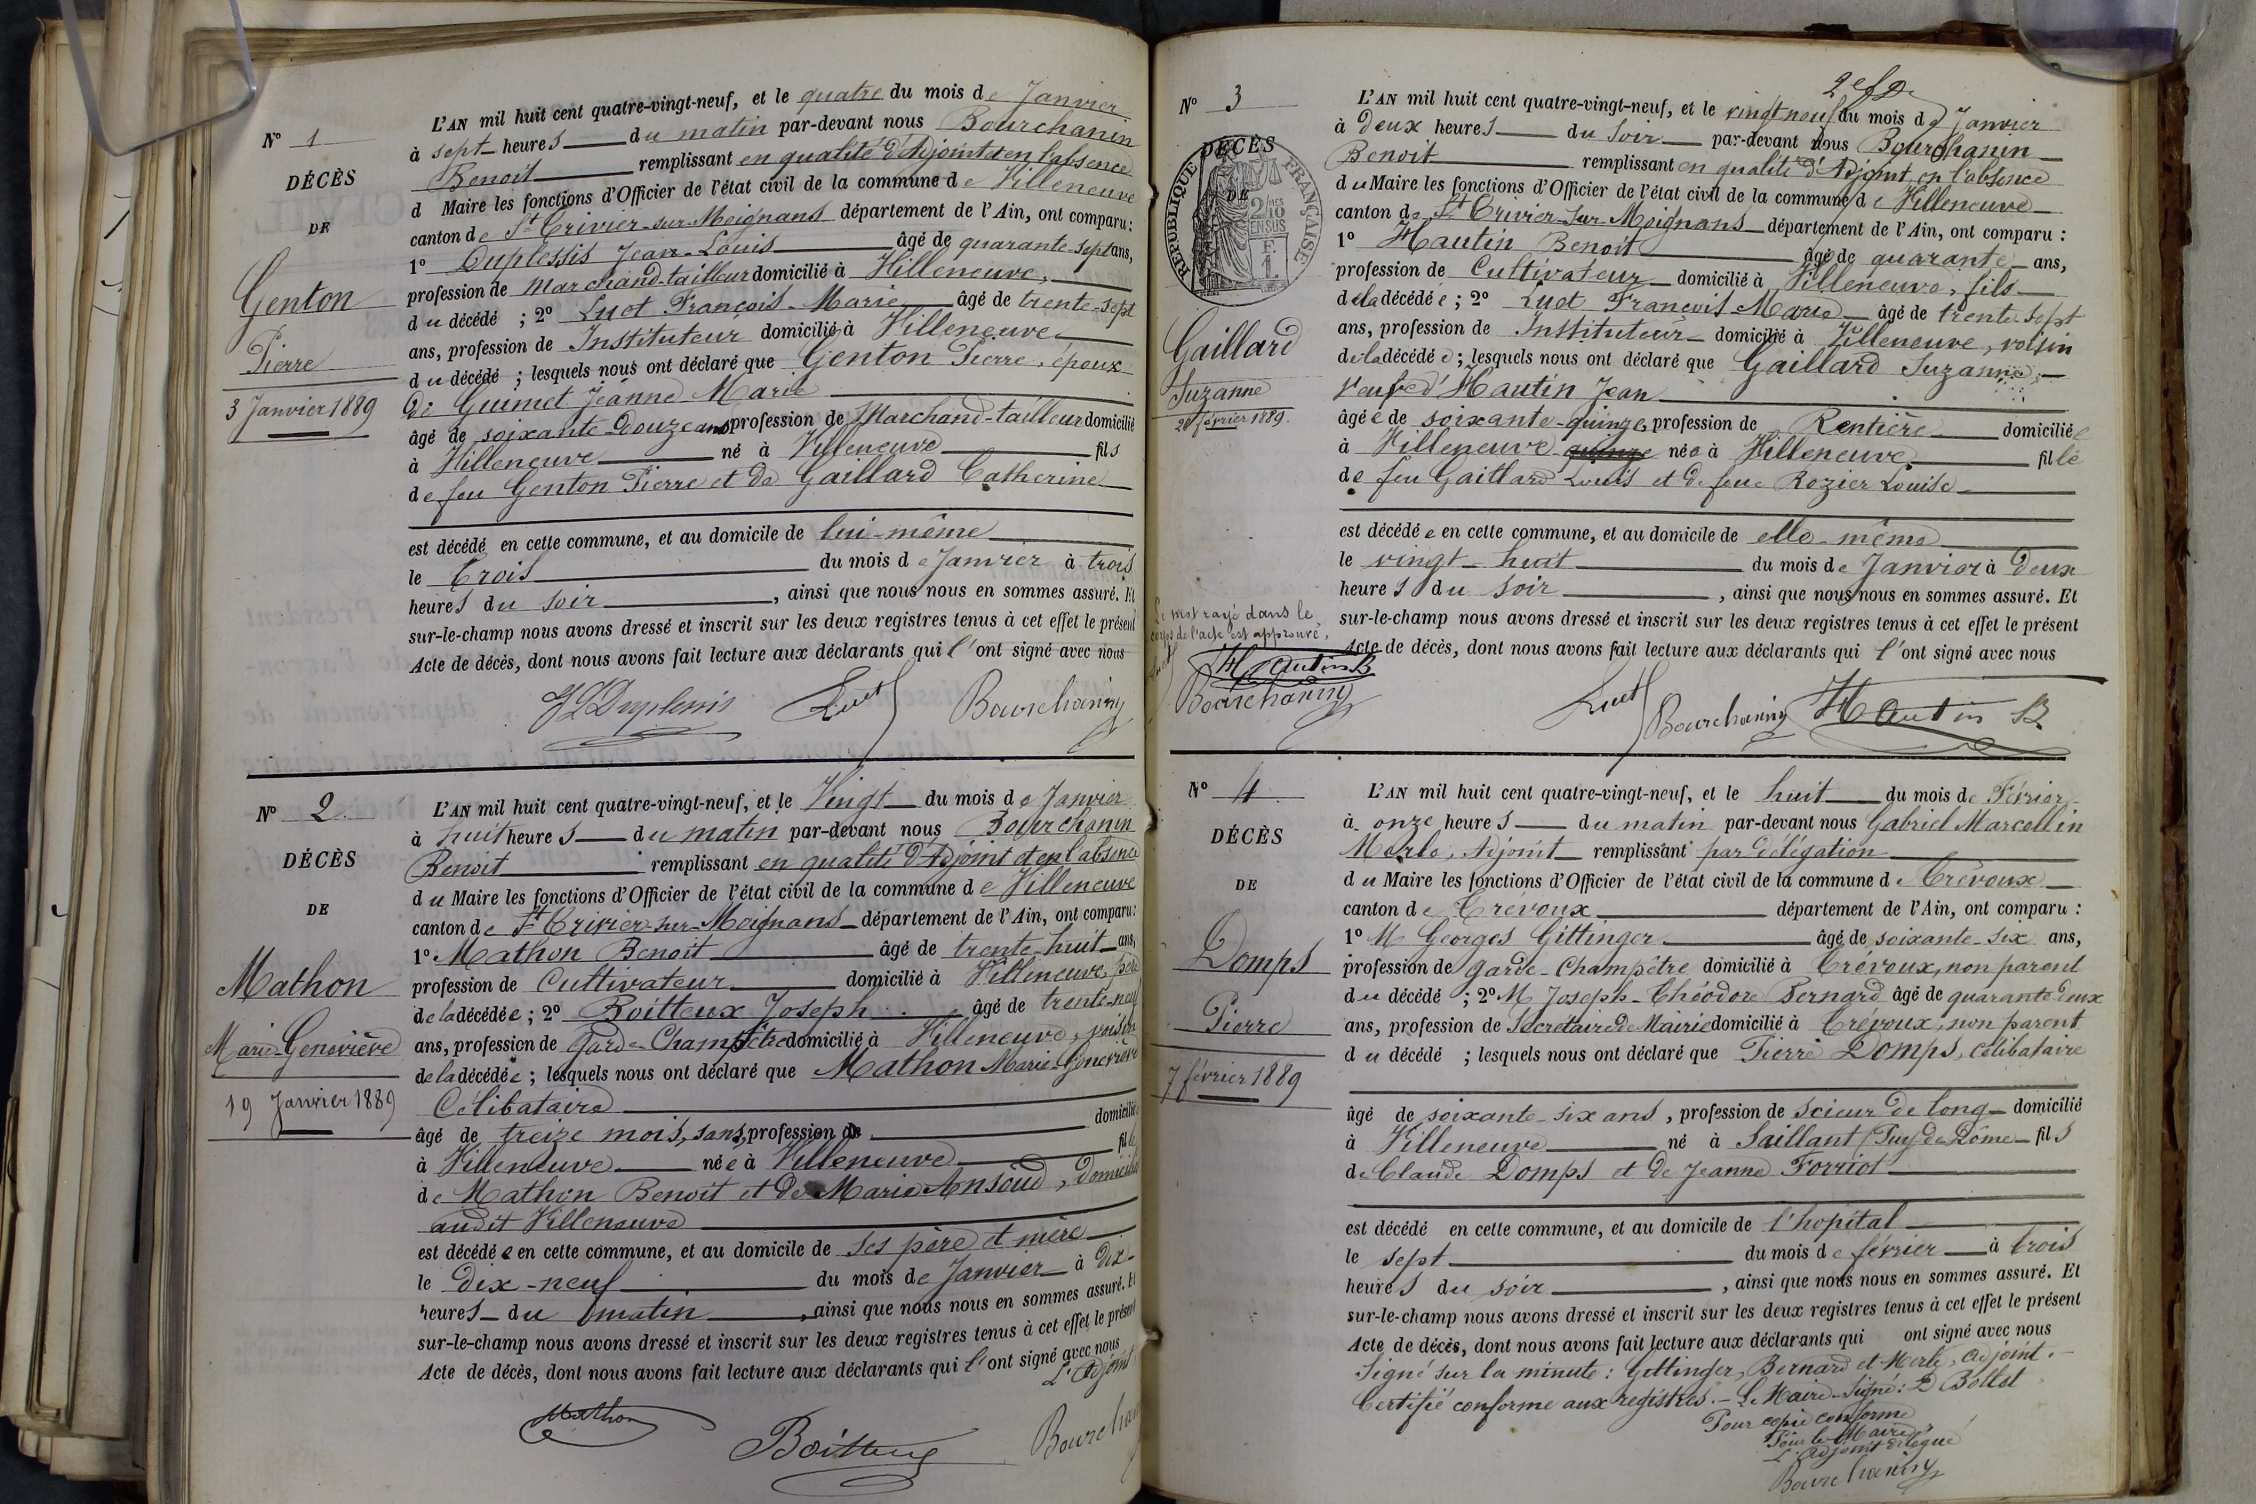 N° 1
DÉCÈS
DE
Genton
Pierre
3 Janvier 1889
L'AN mil huit cent quatre-vingt-neuf, et le quatre du mois de Janvier
à sept heures du matin par-devant nous Bourchanin
Benoit remplissant en qualité d'Adjoint et en l'absence
d Maire les fonctions d'Officier de l'état civil de la commune de Villeneuve
canton de St Trivier-sur-Moignans département de l'Ain, ont comparu :
1° Duplessis Jean-Louis âgé de quarante-sept ans,
profession de marchand-tailleur domicilié à Villeneuve,
du décédé ; 2° Luot François-Marie âgé de trente-sept
ans, profession de Instituteur domicilié à Villeneuve
du décédé ; lesquels nous ont déclaré que Genton Pierre, époux
de Guimet Jeanne Marie
âgé de soixante-douze ans profession de Marchand-tailleur domicilié
à Villeneuve né à Villeneuve fils
de feu Genton Pierre et de Gaillard Catherine
est décédé en cette commune, et au domicile de lui-même
le trois du mois de Janvier à trois
heures du soir, ainsi que nous nous en sommes assuré. Et
sur-le-champ nous avons dressé et inscrit sur les deux registres tenus à cet effet le présent
Acte de décès, dont nous avons fait lecture aux déclarants qui l'ont signé avec nous
JL Duplessis Luot Bourchanin
N° 2
DÉCÈS
DE
Mathon
Marie-Geneviève
19 Janvier 1889
L'AN mil huit cent quatre-vingt-neuf, et le Vingt du mois de Janvier
à huit heures du matin par-devant nous Bourchanin
Benoit remplissant en qualité d'Adjoint et en l'absence
du Maire les fonctions d'Officier de l'état civil de la commune de Villeneuve
canton de St Trivier-sur-Moignans département de l'Ain, ont comparu :
1° Mathon Benoit âgé de trente-huit ans,
profession de Cultivateur domicilié à Villeneuve, père
de la décédée ; 2° Boitteux Joseph âgé de trente-neuf
ans, profession de Garde-Champêtre domicilié à Villeneuve, voisin
de la décédée ; lesquels nous ont déclaré que Mathon Marie-Geneviève
Célibataire
âgé de treize mois, sans profession de domicilié
à Villeneuve née à Villeneuve fille
de Mathon Benoit et de Marie Ansoud, domiciliés
audit Villeneuve
est décédée en cette commune, et au domicile de ses père et mère
le dix-neuf du mois de Janvier à dix
heures du matin, ainsi que nous nous en sommes assuré. Et
sur-le-champ nous avons dressé et inscrit sur les deux registres tenus à cet effet le présent
Acte de décès, dont nous avons fait lecture aux déclarants qui l'ont signé avec nous
L'Adjoint
Mathon Boitteux Bourchan
N° 3
DÉCÈS
DE
RÉPUBLIQUE FRANÇAISE
2/10 EN SUS
Gaillard
Suzanne
28 février 1889.
Le mot rayé dans le
corps de l'acte est approuvé,
Luot
Hautin B
Bourchanin
L'AN mil huit cent quatre-vingt-neuf, et le vingt neuf du mois de Janvier
à deux heures du soir par-devant nous Bourchanin
Benoit remplissant en qualité d'Adjoint en l'absence
du Maire les fonctions d'Officier de l'état civil de la commune de Villeneuve
canton de St Trivier-sur-Moignans département de l'Ain, ont comparu :
1° Hautin Benoit âgé de quarante ans,
profession de Cultivateur domicilié à Villeneuve, fils
de la décédée ; 2° Luot François-Marie âgé de trente-sept
ans, profession de Instituteur domicilié à Villeneuve, voisin
de la décédée ; lesquels nous ont déclaré que Gaillard Suzanne,
veuve d'Hautin Jean
âgée de soixante-quinze, profession de Rentière domiciliée
à Villeneuve quinze née à Villeneuve fille
de feu Gaillard Louis et de feue Rozier Louise
est décédée en cette commune, et au domicile de elle-même
le vingt-huit du mois de Janvier à deux
heures du soir, ainsi que nous nous en sommes assuré. Et
sur-le-champ nous avons dressé et inscrit sur les deux registres tenus à cet effet le présent
Acte de décès, dont nous avons fait lecture aux déclarants qui l'ont signé avec nous
Luot Bourchanin Hautin B
N° 4
DÉCÈS
DE
Domps
Pierre
7 février 1889
L'AN mil huit cent quatre-vingt-neuf, et le huit du mois de Février
à onze heures du matin par-devant nous Gabriel Marcellin
Merle, Adjoint remplissant par délégation
du Maire les fonctions d'Officier de l'état civil de la commune de Trévoux
canton de Trévoux département de l'Ain, ont comparu :
1° M Georges Gittinger âgé de soixante-six ans,
profession de garde-champêtre domicilié à Trévoux, non parent
du décédé ; 2° M Joseph-Théodore Bernard âgé de quarante deux
ans, profession de Secrétaire de Mairie domicilié à Trévoux, non parent
du décédé ; lesquels nous ont déclaré que Pierre Domps, célibataire
âgé de soixante-six ans, profession de scieur de long domicilié
à Villeneuve né à Saillant (Puy de Dôme fils
de Claude Domps et de Jeanne Forriot
est décédé en cette commune, et au domicile de l'hopital
le sept du mois de février à trois
heures du soir, ainsi que nous nous en sommes assuré. Et
sur-le-champ nous avons dressé et inscrit sur les deux registres tenus à cet effet le présent
Acte de décès, dont nous avons fait lecture aux déclarants qui ont signé avec nous
Signé sur la minute : Gittinger, Bernard et Merle, adjoint.
Certifié conforme aux registres. - Le Maire - Signé : D Bollet
Pour copie conforme
Pour le Maire
L'Adjoint délégué
Bourchanin